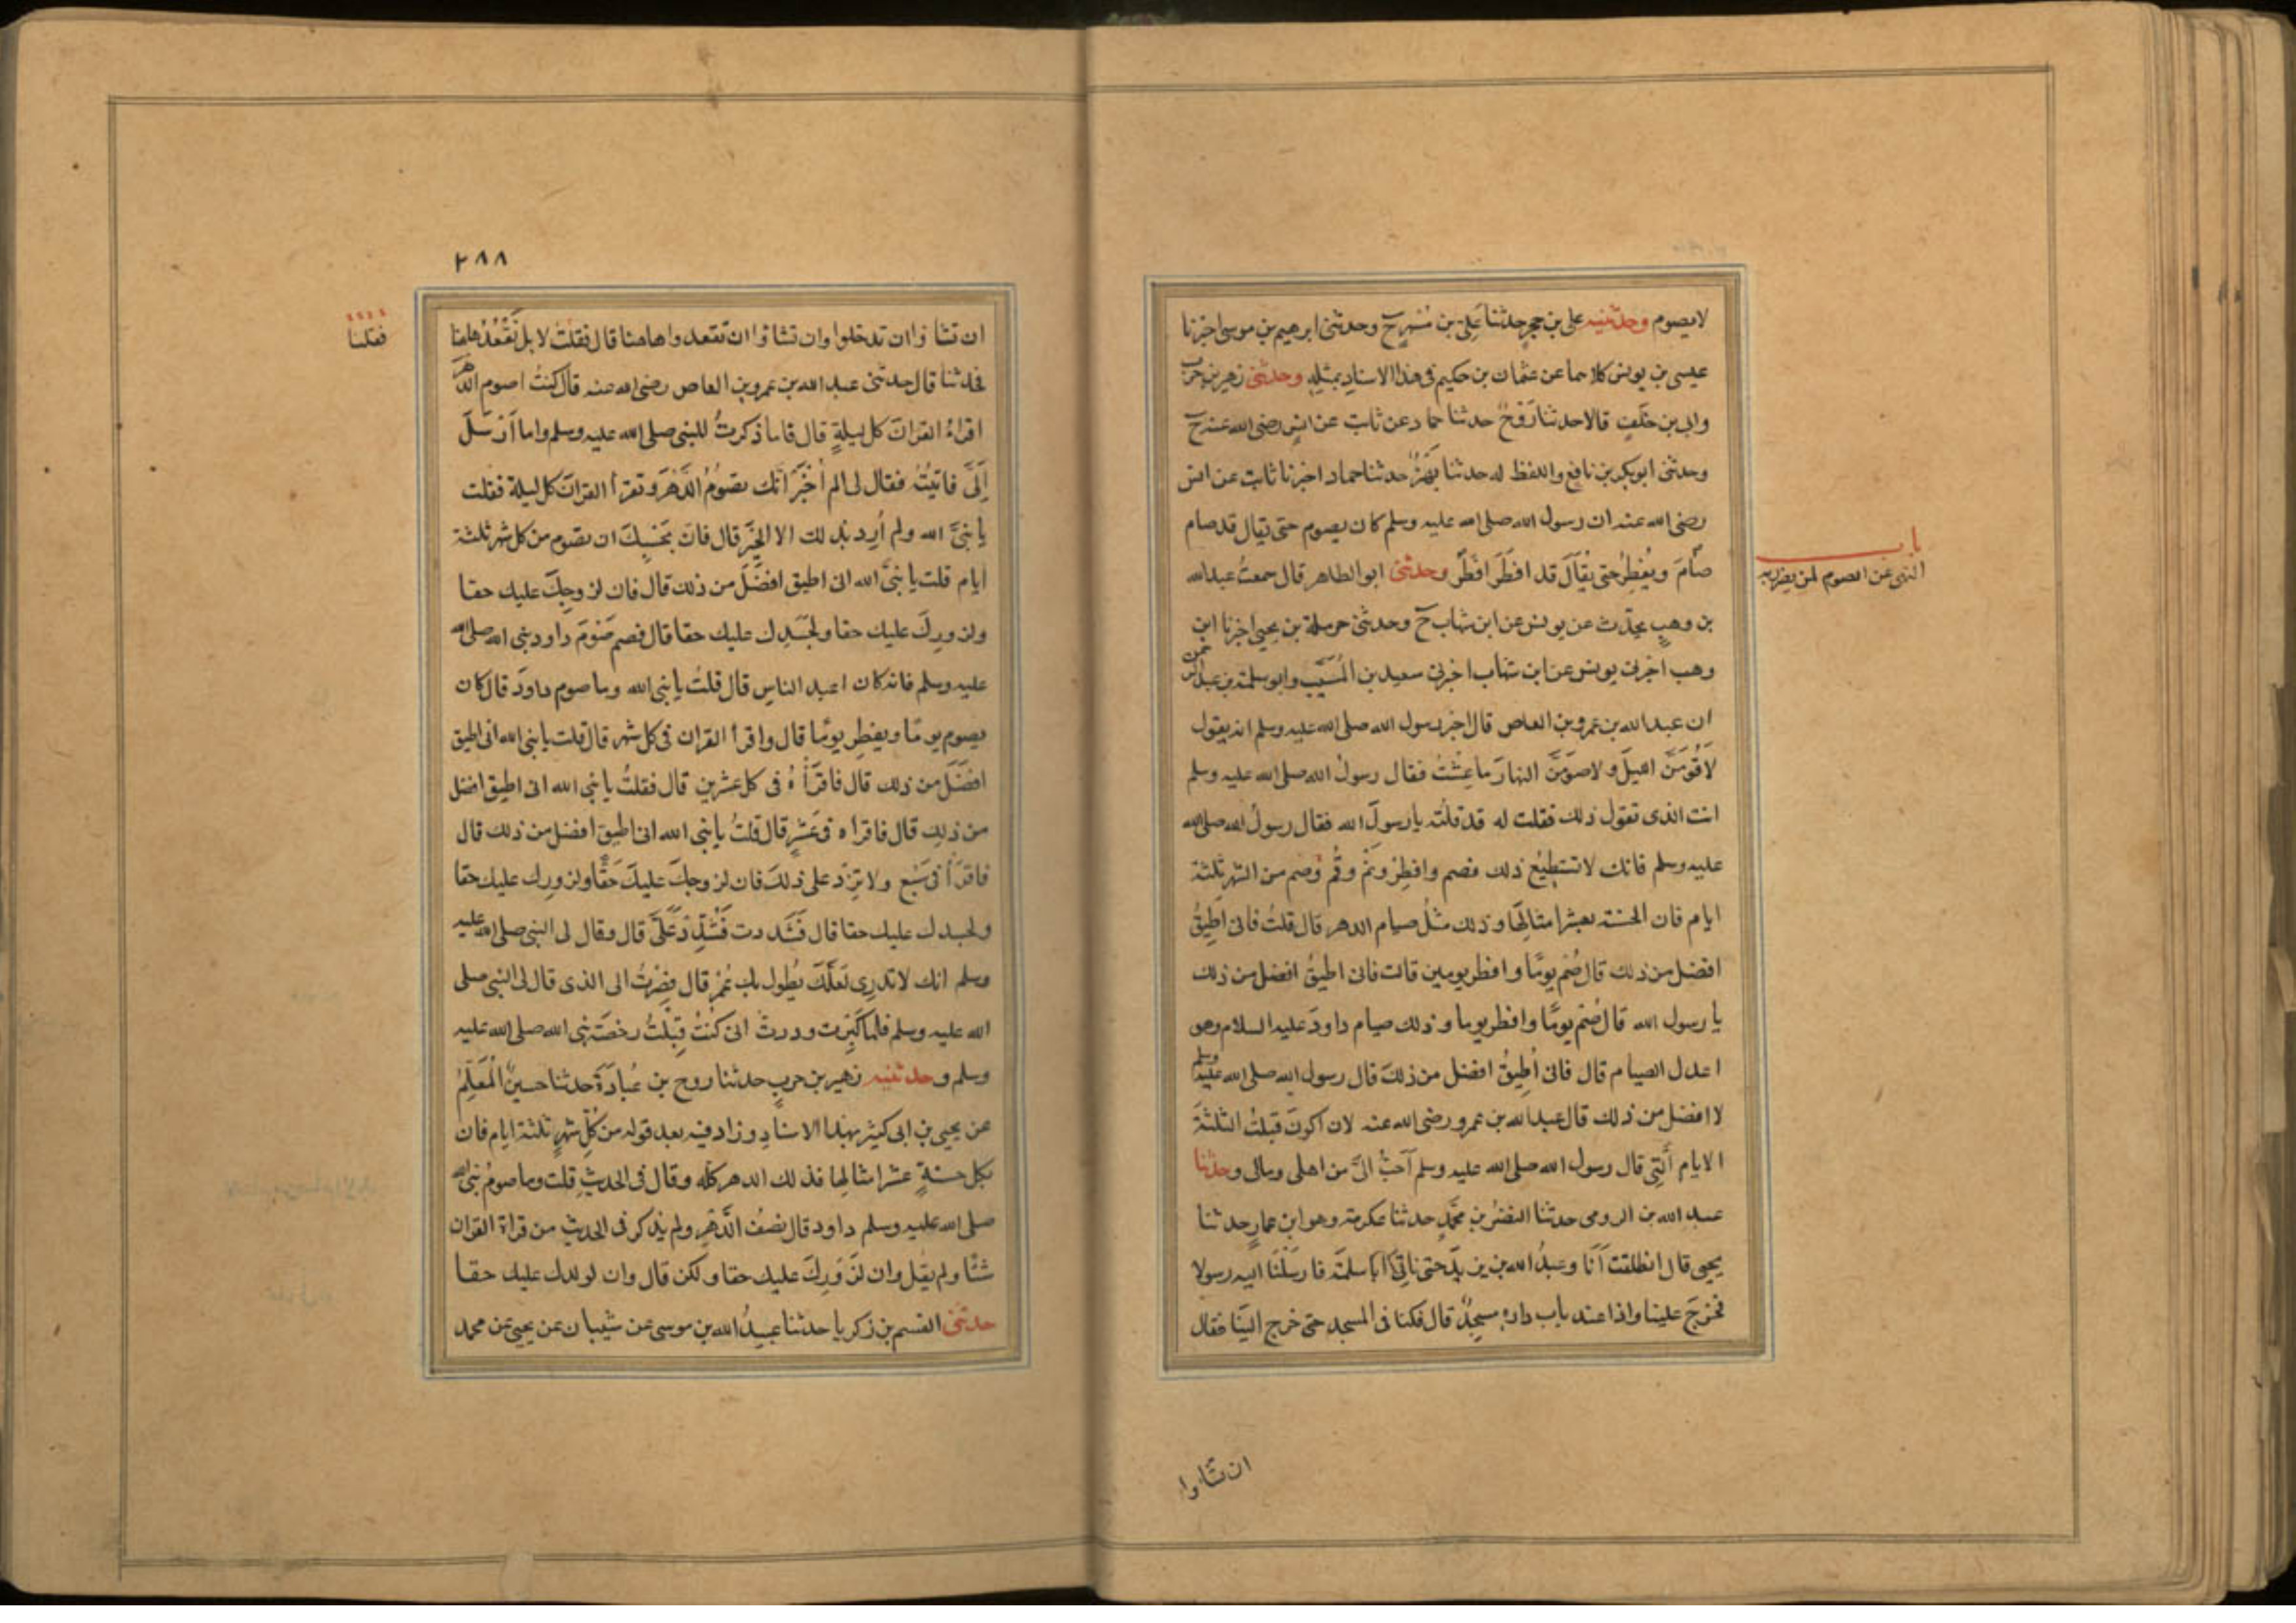 لايصوم وحدثنيه على بن حجر حدثنا على بن مُسْهِرٍ ح وحدثنى ابرهيم بن موسى اخبرنا
عيسى بن يونس كلاهما عن عثمان بن حكيم فى هذا الاسناد بمثله وحدثنى زهير بن حرب
وابن ابى خَلَفٍ قالا حدثنا رَوْحٌ حدثنا حماد عن ثابت عن انس رضى الله عنه ح
وحدثنى ابوبكر بن نافع واللفظ له حدثنا بَهْزٌ حدثنا حماد اخبرنا ثابت عن انس
رضى الله عنه ان رسول الله صلى الله عليه وسلم كان يصوم حتى يقال قد صام
صَامَ ويُفْطِرُ حتى يُقَالَ قد افطَرَ افطَرَ وحدثنى ابوالطاهر قال سمعتُ عبدالله
باب
النهى عن الصوم لمن يضرّ به
بن وهبٍ يحدّث عن يونس عن ابن شهاب ح وحدثنى حرملة بن يحيى اخبرنا ابن
وهب اخبرنى يونس عن ابن شهاب اخبرنى سعيد بن المُسَيَّب وابو سلمة بن عبد الرحمن
ان عبد الله بن عمرو بن العاص قال اخبر رسول الله صلى الله عليه وسلم انه يقول
لَاَقُومَنَّ الليلَ ولاصومَنَّ النهارَ ما عِشْتُ فقال رسولُ الله صلى الله عليه وسلم
انت الذى تقول ذلك فقلت له قد قلتُه يا رسولَ الله فقال رسولُ الله صلى الله
عليه وسلم فانك لا تستطيعُ ذلك فصم وافطِرْ ونَمْ وقُمْ وصُم من الشهر ثلثة
ايام فان الحسنة بعشر امثالِهَا وذلك مثلُ صيام الدهر قال قلتُ فانى اطيقُ
افضل من ذلك قال صُم يومًا وافطر يومين قالت فانى اطيقُ افضل من ذلك
يا رسول الله قال صُم يومًا وافطر يوما وذلك صيام داودَ عليه السلام وهو
اعدل الصيام قال فانى اُطِيقُ افضل من ذلك قال رسول الله صلى الله عليه وسلم
لا افضل من ذلك قال عبد الله بن عمرو رضى الله عنه لان اكونَ قبلتُ الثلثةَ
الايام اَلّتِى قال رسول الله صلى الله عليه وسلم اَحَبُّ اِلىَّ من اهلى ومالى وحدثنا
عبد الله بن الرومى حدثنا النضرُ بن محَمّدٍ حدثنا عكرمة وهو ابن عمار حدثنا
يحيى قال انطلقت اَنَا وعبدُ الله بن يزيدَ حتى ناتِىَ ابَا سلمَة فارسَلْنَا اليه رسولا
فخرَجَ علينا واذا عند باب داره مسجدٌ قال فكنا فى المسجد حتى خرج اليْنَا فقال
ان تشاؤا
٢٨٨
ان تشاؤا ان تدخلوا وان تشاؤا ان تقعدوا هاهنا قال فقلتُ لا بل نَقْعُدُ هاهنا
فقلنا
فحدثنا قال حدثنى عبد الله بن عمرو بن العاص رضى الله عنه قال كنتُ اصوم الدهر
اقراءُ القرانَ كل ليلةٍ قال فاما ذكرتُ للنبى صلى الله عليه وسلم واما اَرْسَلَ
اِلَىَّ فاتيتُه فقال لى الم اُخْبَرْ اَنّك تصُومُ الدَّهْرَ وتقرأ القرانَ كل ليلة فقلت
يا نبىَّ الله ولم اُرِد بذلك الا الخيْرَ قال فانّ بحَسْبِكَ ان تصُوم من كل شهر ثلثة
ايام قلت يا نبىَّ الله انى اطيق افضَلَ من ذلك قال فان لزوجِكَ عليك حقا
ولزورِكَ عليك حقا ولجَسَدِك عليك حقا قال فصم صَوْمَ داود نبى الله صلى الله
عليه وسلم فانه كان اعبد الناس قال قلتُ يا نبى الله وما صوم داودَ قال كان
يصوم يومًا ويفطر يومًا قال واقرأ القران فى كل شهر قال قلت يا نبى الله انى اطيق
افضَلَ من ذلك قال فاقرَأْهُ فى كل عشرين قال فقلتُ يا نبى الله انى اطيق افضل
من ذلك قال فاقراه فى عَشْرٍ قال قلتُ يا نبى الله انى اطيق افضل من ذلك قال
فاقرَأْ فى سَبْع ولا تَزِدْ على ذلكَ فان لزوجِكَ عليكَ حَقًّا ولزورِك عليك حقا
ولجسدك عليك حقا قال فَشَدّدت فَشُدِّدَ عَلَىَّ قال وقال لى النبى صلى الله عليه
وسلم انك لا تدرِى لَعَلَّكَ يُطول بك عُمْرٌ قال فصِرْتُ الى الذى قال لى النبى صلى
الله عليه وسلم فلما كَبِرْت وددتُ انى كنتُ قبِلْتُ رخصَة نبى الله صلى الله عليه
وسلم وحدثنيه زهير بن حربٍ حدثنا روح بن عُبادَةَ حدثنا حسينٌ الْمُعَلِّمُ
عن يحيى بن ابى كثير بهذا الاسنادِ وزاد فيه بعد قوله من كُلِّ شهرٍ ثلثة ايام فان
بكل حسنةٍ عشر امثالِها فذلك الدهر كُلّه وقال فى الحديثِ قلت وما صومُ نبى الله
صلى الله عليه وسلم داود قال نصفُ الدَّهْرِ ولم يذكر فى الحديث من قراة القران
شئًا ولم يقل وان لزَوْرِكَ عليك حقا ولكن قال وان لولدك عليك حقا
حدثنى القسم بن زكريا حدثنا عبيدُ الله بن موسى عن شيبان عن يحيى عن محمد